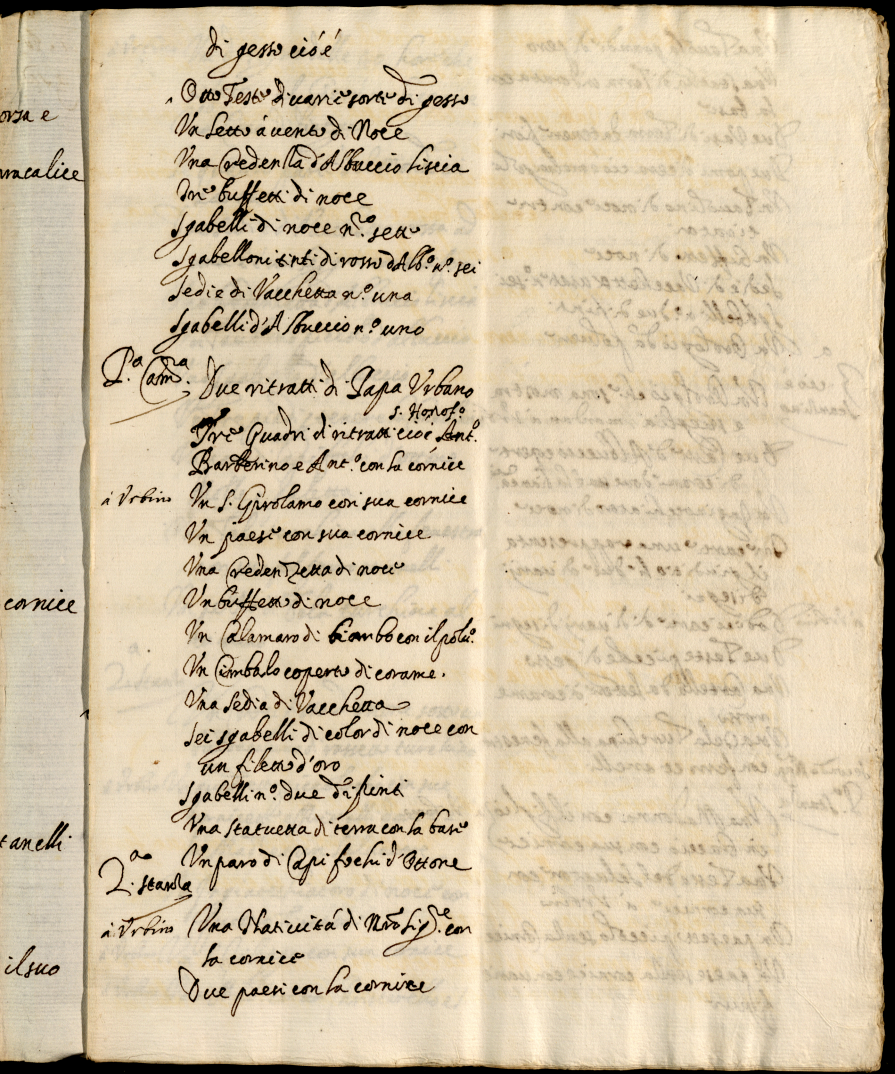 orza e
calice
cornice
tanelli
il suo
di gesso cióé
Otto Teste di varie sorte di gesso
Vn Letto á vento di Noce
Vna Credenza d'Albuccio liscia
Tre buffetti di noce
Sgabelli di noce n.º sette
Sgabelloni tinti di rosso d'Alb.º n.º sei
Sedie di Vacchetta n.º una
Sgabelli d'Albuccio n.º uno
P.ª Cam.ª
Due ritratti di Papa Vrbano
Tre Quadri di ritratti cioè Ant.º
Barberino e Ant.º con la cornice
á Vrbino Vn S. Girolamo con sua cornice
Vn paese con sua cornice
Vna credenzetta di noce
Vn buffetto di noce
Vn Calamaro di piombo con il polu.º
Vn Cimbalo coperto di corame.
Vna Sedia di Vacchetta
Sei sgabelli di color di noce con
un filetto d'oro
Sgabelli n.º due dipinti
Vna statuetta di terra con la base
Vn paro di Capi fochi d'Ottone
2.ª stanza
á Vrbino Vna Natiuitá di Nrõ Sig.re con
la cornice
Due paesi con la cornice